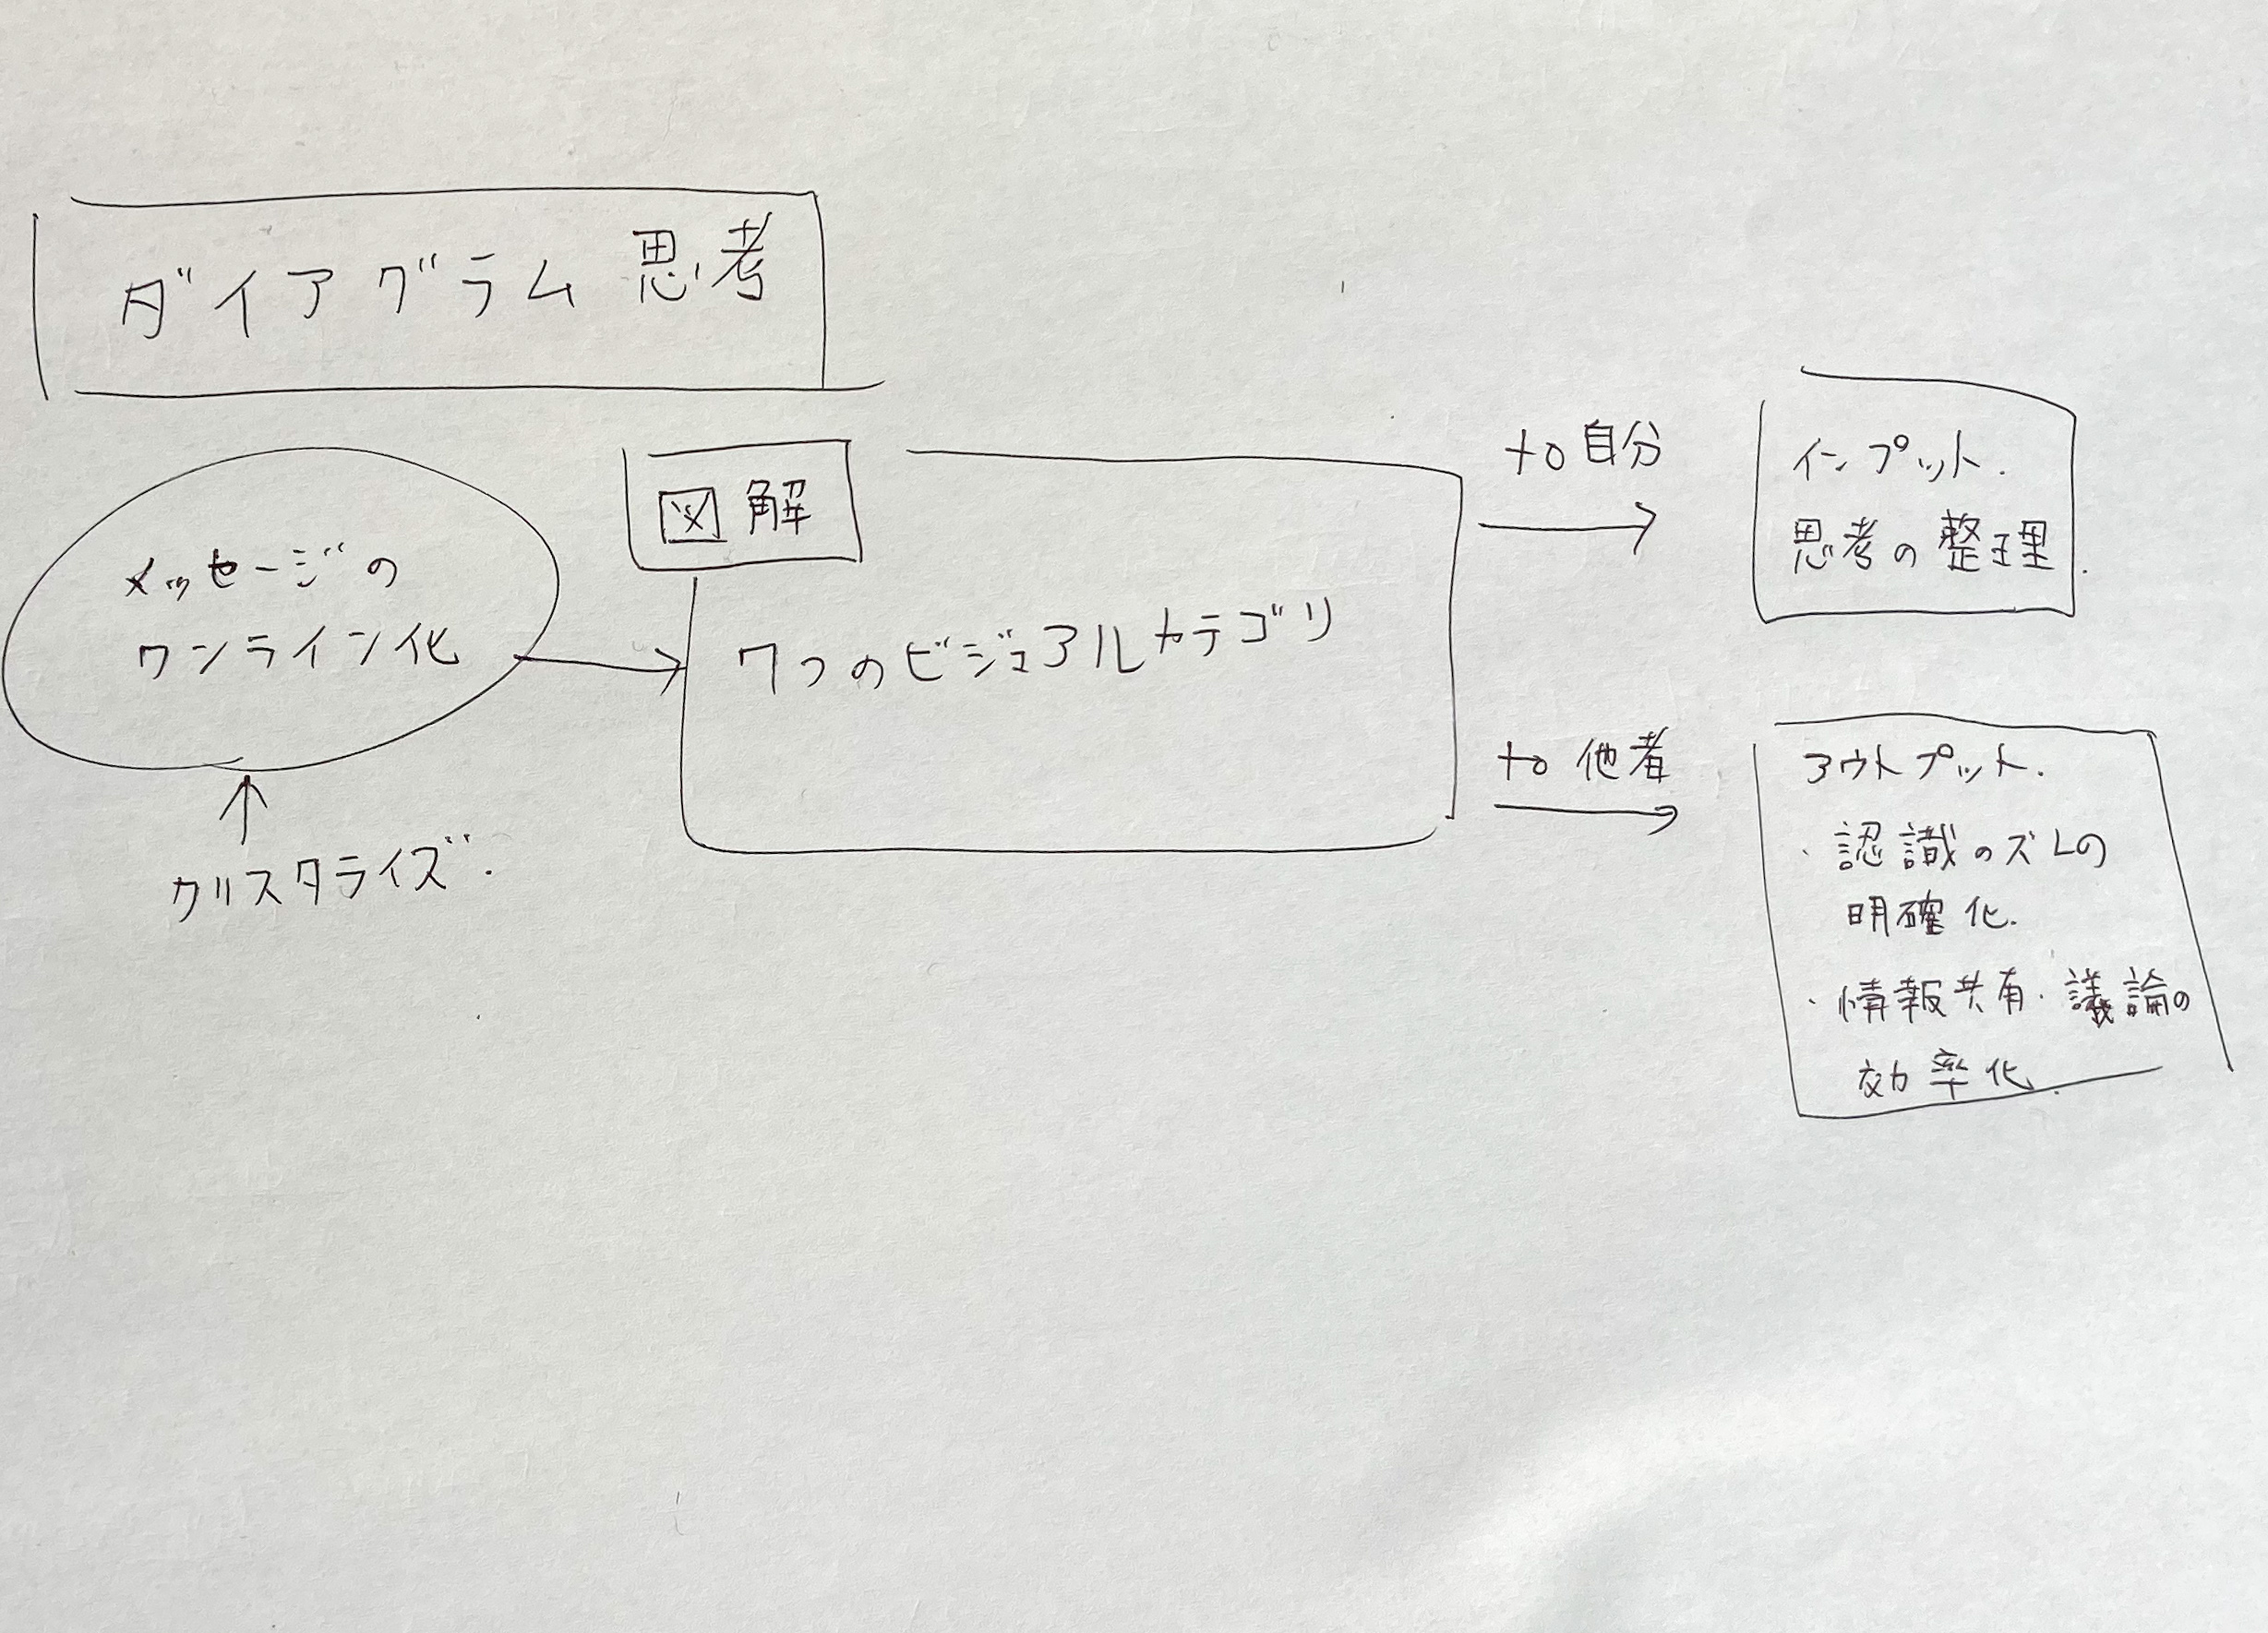 ダイアグラム思考
メッセージの
ワンライン化
クリスタライズ.
図解
7つのビジュアルカテゴリ
to 自分
インプット.
思考の整理.
to 他者
アウトプット.
・認識のズレの
明確化.
・情報共有・議論の
効率化.